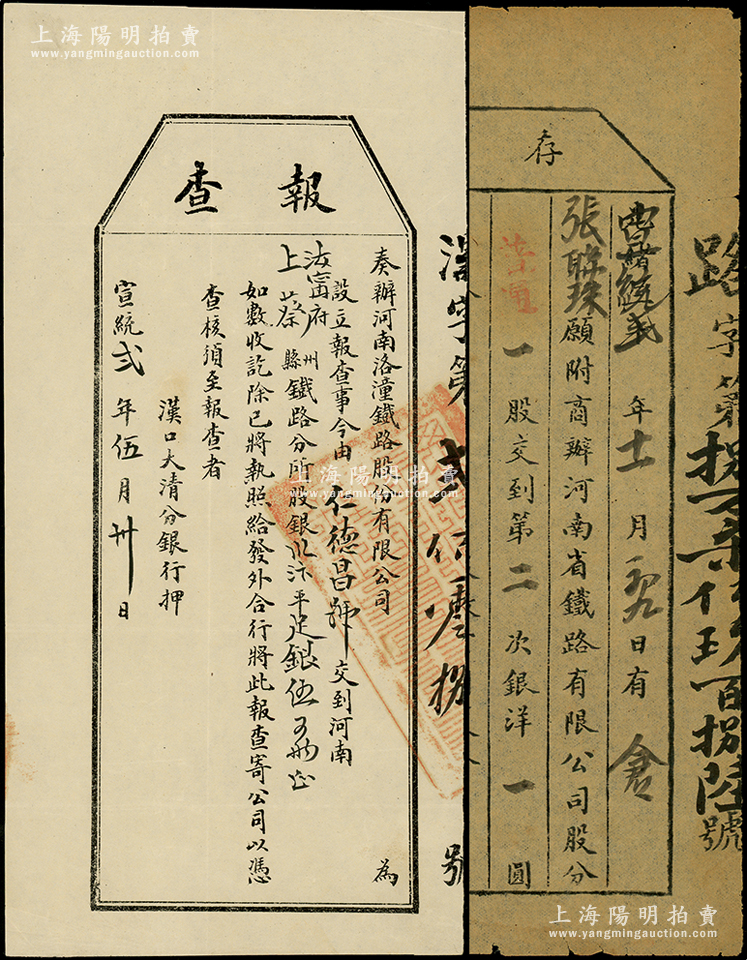 上海陽明拍賣
www.yangmingauction.com
報查
奏辦河南洛潼鐵路股份有限公司 為
設立報查事今由 仁德昌號 交到河南
汝寧府州
上蔡縣 鐵路分所股銀 汴平足銀伍
如數收訖除已將執照給發外合行將此報查寄公司以憑
查核須至報查者
漢口大清分銀行押
宣統弍年伍月卅日
漢字第弍仟 捌 號
存
統 年十一月 日有
張聯珠願附商辦河南省鐵路有限公司股分
一股交到第二次銀洋一圓
路字第拐 百捌陸號
上海陽明拍賣
www.yangmingauction.com
上海陽明拍賣
www.yangmingauction.com